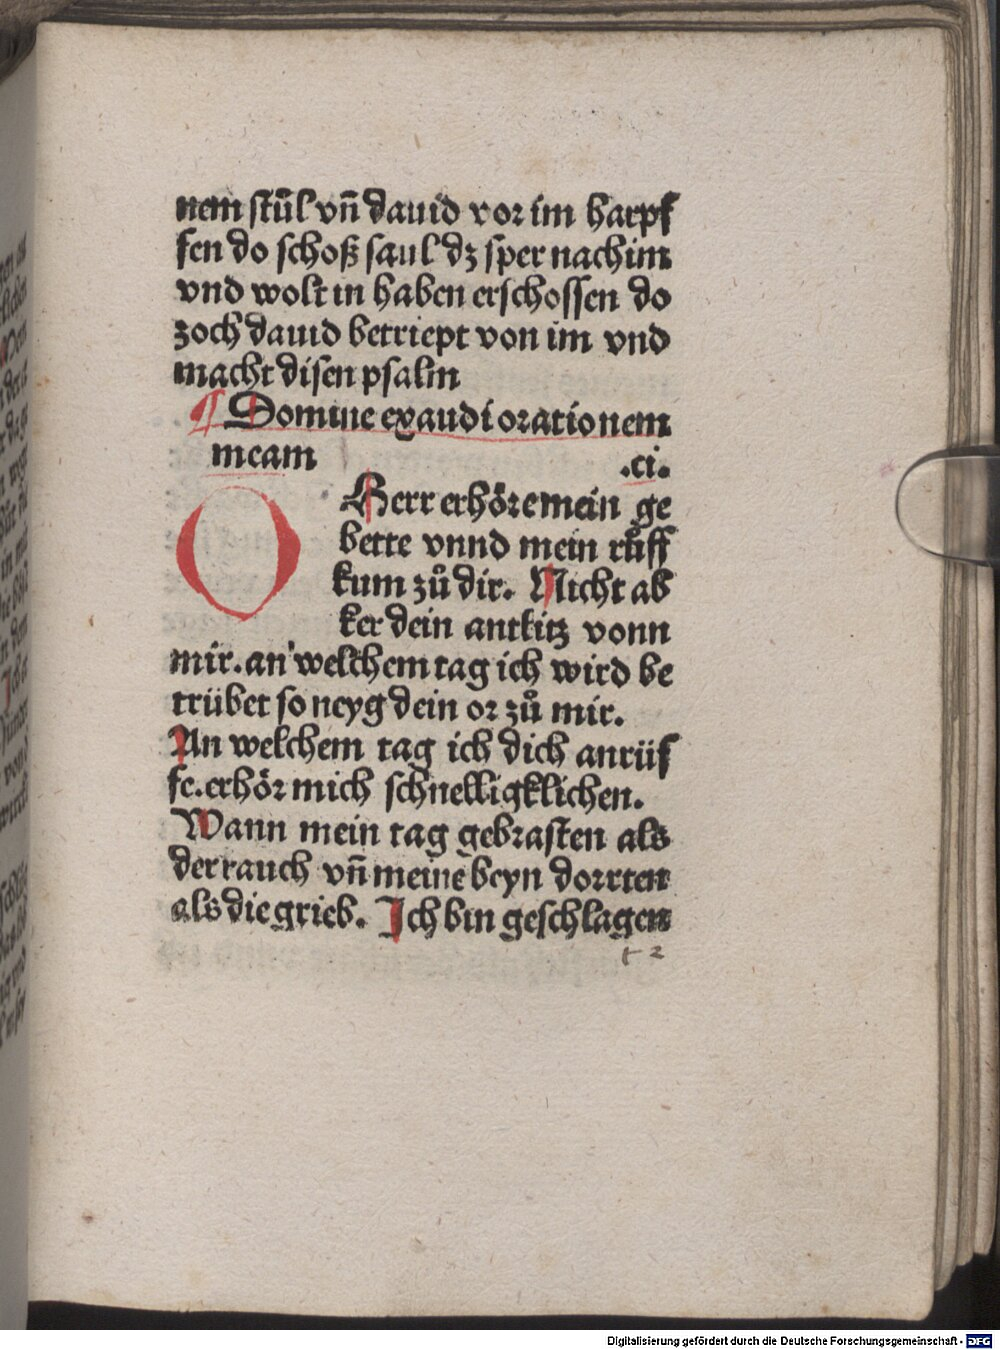 nem stůl vñ dauid vor im harpf
fen do schoß saul dz sper nach im
vnd wolt in haben erschossen do
zoch dauid betriept von im vnd
macht disen psalm
¶ Domine exaudi orationem
meam .ci.
O Herr erhöre mein ge
bette vnnd mein růff
kum zů dir. Nicht ab
ker dein antlitz vonn
mir. an welchem tag ich wird be
trübet so neyg dein or zů mir.
An welchem tag ich dich anrüf
fe. erhör mich schnelligklichen.
Wann mein tag gebrasten als
der rauch vñ meine beyn dorrten
als die grieb. Ich bin geschlagen
t 2
Digitalisierung gefördert durch die Deutsche Forschungsgemeinschaft - DFG